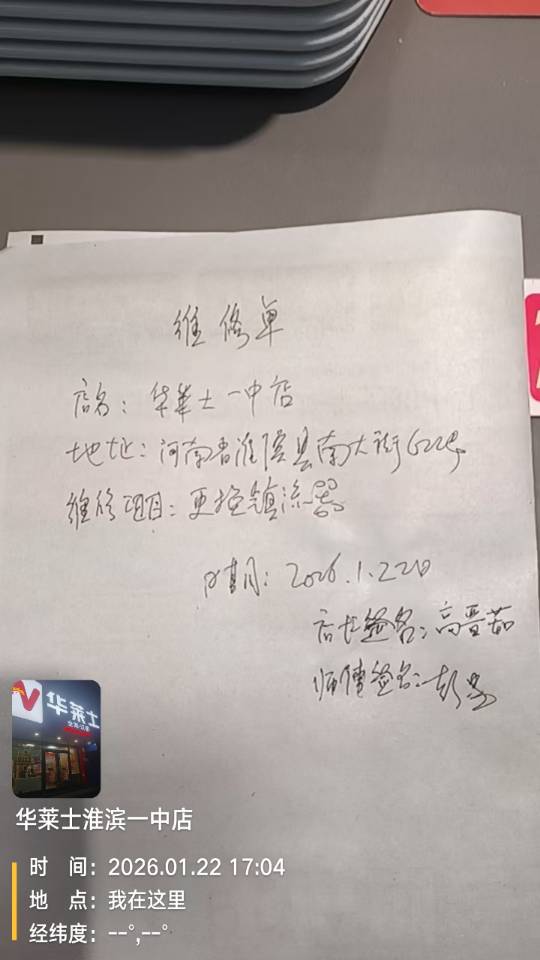 维修单
店名：华莱士一中店
地址：河南省淮滨县南大街622号
维修项目：更换镇流器
日期：2026.1.22日
店长签名：高晋茹
师傅签名：彭
华莱士
华莱士淮滨一中店
时 间：2026.01.22 17:04
地 点：我在这里
经纬度：--°,--°